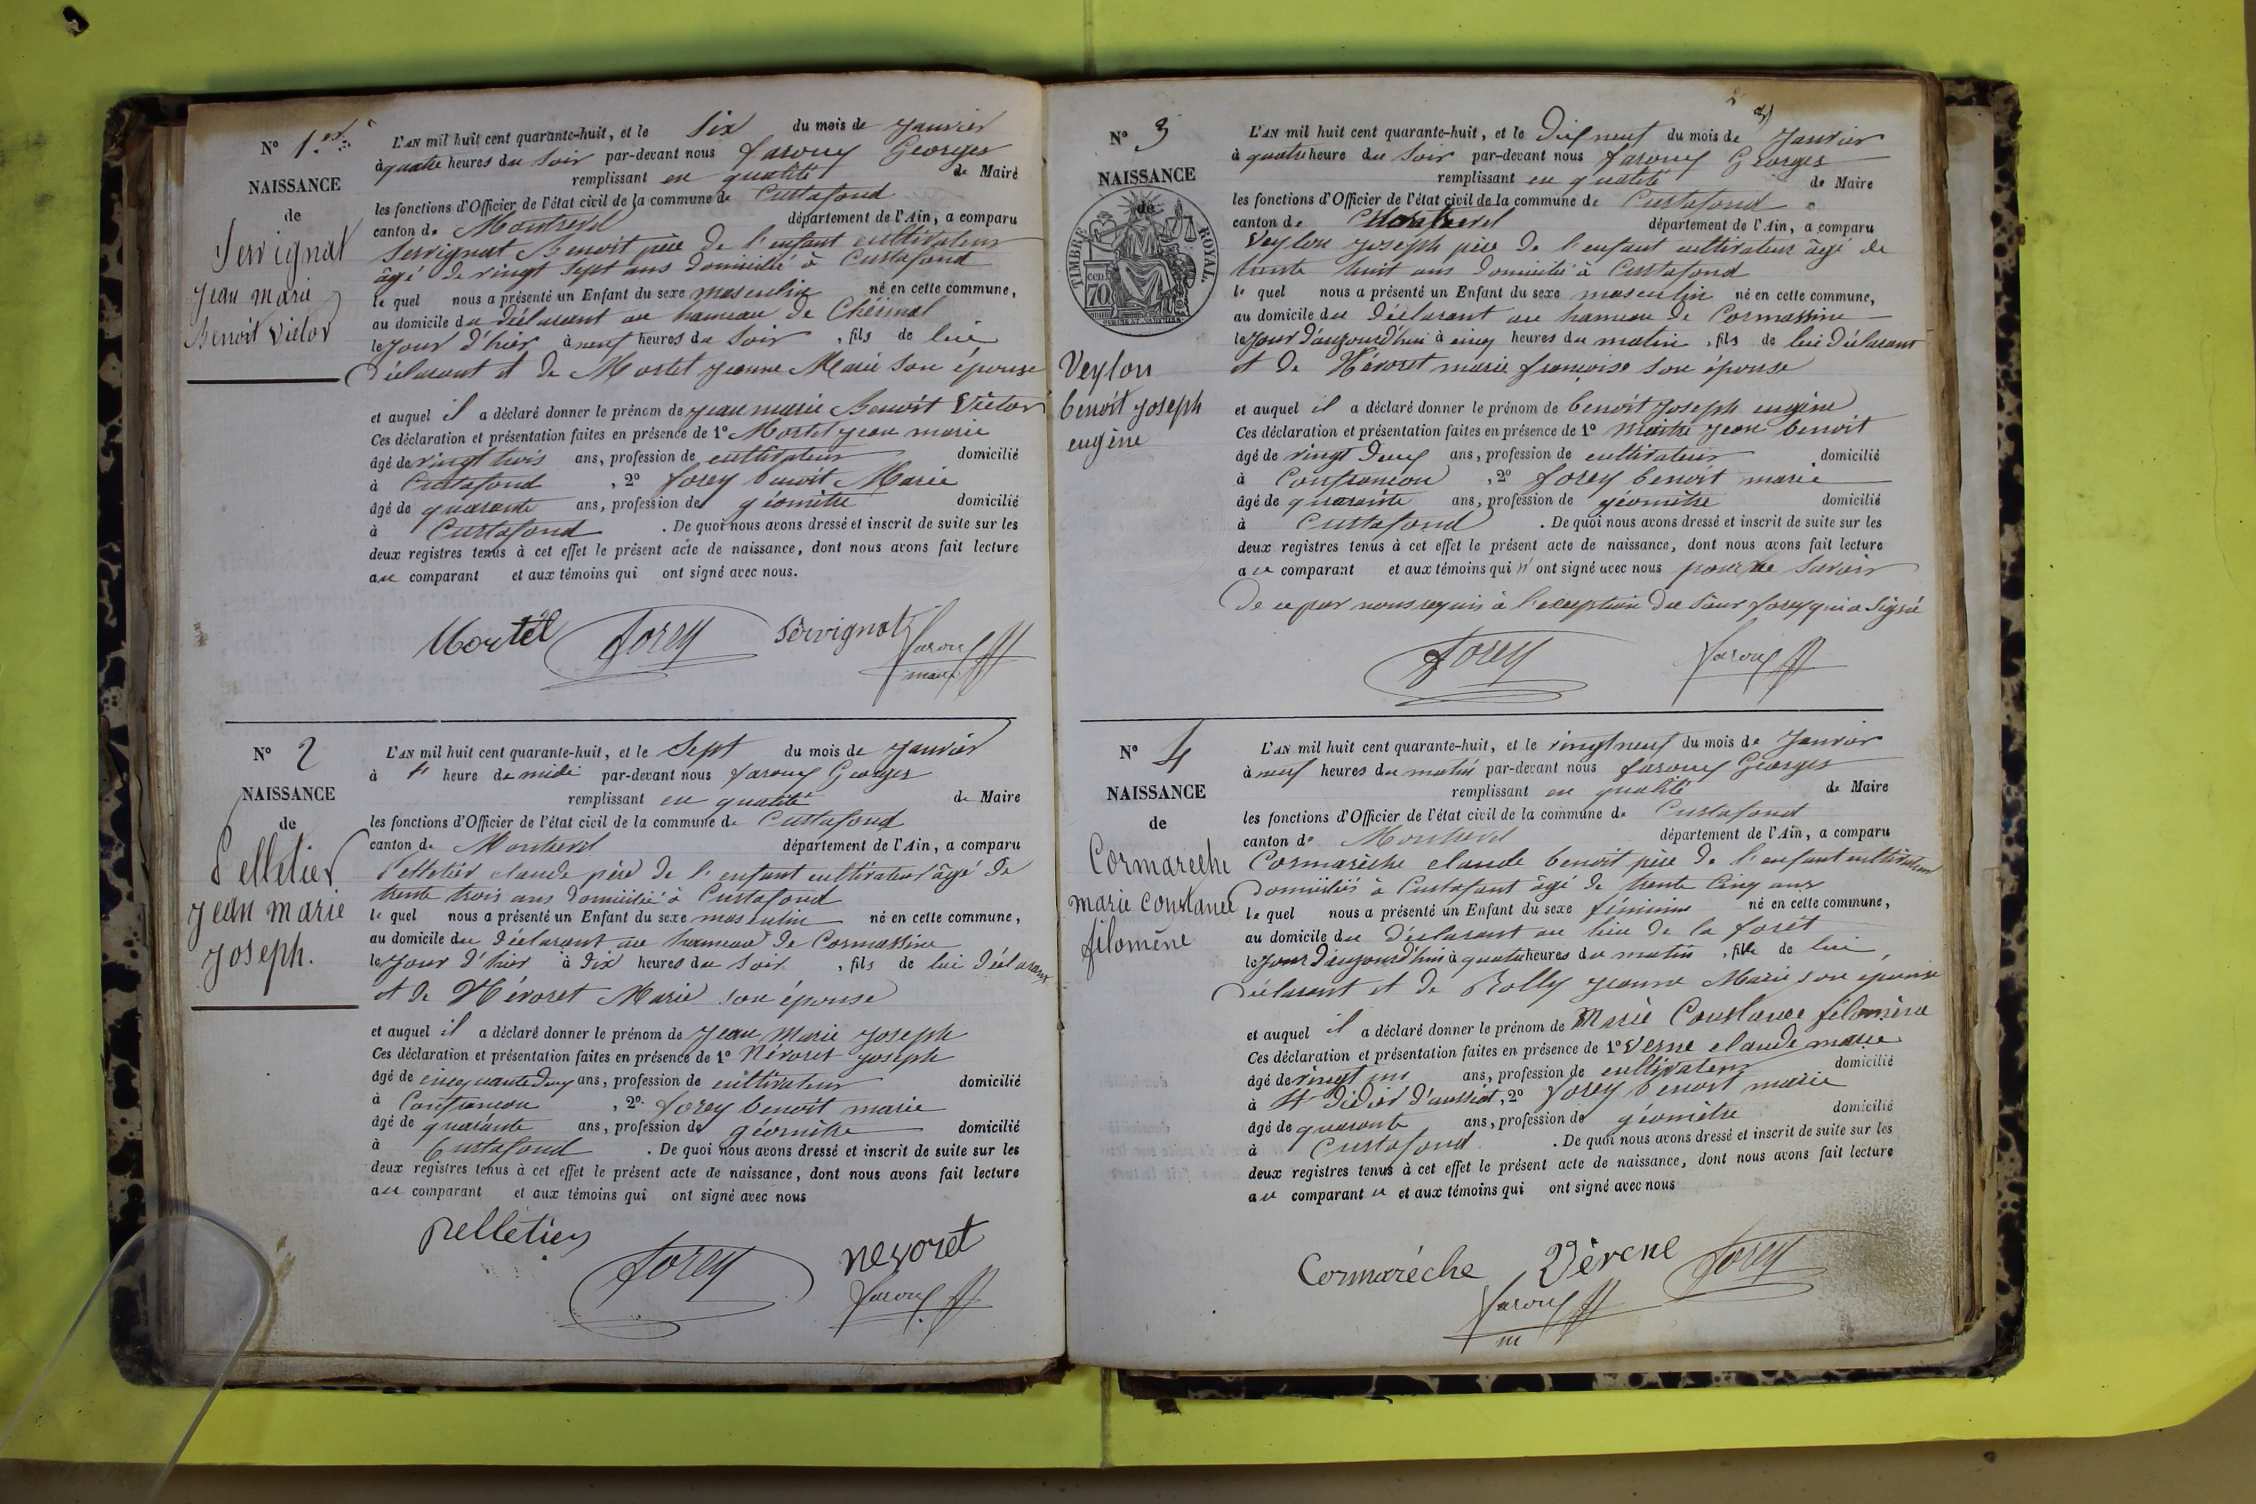 N° 1.er
NAISSANCE
de
Servignat
Jean marie
Benoit Victor
L'AN mil huit cent quarante-huit, et le Six du mois de Janvier
à quatre heures du Soir par-devant nous faroux Georges
remplissant en qualité de Maire
les fonctions d'Officier de l'état civil de la commune de Custafond
canton de Montrevel département de l'Ain, a comparu
Servignat Benoit père de l'enfant cultivateur
âgé de vingt sept ans domicilié à Custafond
le quel nous a présenté un Enfant du sexe masculin né en cette commune,
au domicile du déclarant au hameau de
le Jour d'hier à neuf heures du Soir, fils de lui
déclarant et de Mortel Jeanne Marie son épouse
et auquel il a déclaré donner le prénom de Jean marie Benoit Victor
Ces déclaration et présentation faites en présence de 1° Mortel Jean marie
âgé de vingt trois ans, profession de cultivateur domicilié
à Custafond, 2° forey benoit Marie
âgé de quarante ans, profession de géomètre domicilié
à Custafond. De quoi nous avons dressé et inscrit de suite sur les
deux registres tenus à cet effet le présent acte de naissance, dont nous avons fait lecture
au comparant et aux témoins qui ont signé avec nous.
Mortel forey Servignat faroux
maire
N° 2
NAISSANCE
de
Pelletier
Jean marie
Joseph.
L'AN mil huit cent quarante-huit, et le Sept du mois de Janvier
à l' heure de midi par-devant nous faroux Georges
remplissant en qualité de Maire
les fonctions d'Officier de l'état civil de la commune de Custafond
canton de Montrevel département de l'Ain, a comparu
Pelletier claude père de l'enfant cultivateur âgé de
trente trois ans domicilié à Custafond
le quel nous a présenté un Enfant du sexe masculin né en cette commune,
au domicile du déclarant au hameau de Cormassine
le Jour d'hier à dix heures du Soir, fils de lui déclarant
et de Névoret Marie son épouse
et auquel il a déclaré donner le prénom de Jean Marie Joseph
Ces déclaration et présentation faites en présence de 1° Névoret Joseph
âgé de cinquante deux ans, profession de cultivateur domicilié
à Confrancon, 2° forey benoit marie
âgé de quarante ans, profession de géomètre domicilié
à Custafond. De quoi nous avons dressé et inscrit de suite sur les
deux registres tenus à cet effet le présent acte de naissance, dont nous avons fait lecture
au comparant et aux témoins qui ont signé avec nous
Pelletier forey nevoret
faroux
N° 3
NAISSANCE
de
TIMBRE ROYAL
70
Veylon
benoit Joseph
eugène
L'AN mil huit cent quarante-huit, et le Dix neuf du mois de Janvier
à quatre heure du Soir par-devant nous faroux Georges
remplissant en qualité de Maire
les fonctions d'Officier de l'état civil de la commune de Custafond
canton de Montrevel département de l'Ain, a comparu
Veylon Joseph père de l'enfant cultivateur âgé de
trente huit ans domicilié à Custafond
le quel nous a présenté un Enfant du sexe masculin né en cette commune,
au domicile du déclarant au hameau de Cormassine
le Jour d'aujourd'hui à cinq heures du matin, fils de lui déclarant
et de Névoret marie françoise son épouse
et auquel il a déclaré donner le prénom de benoit Joseph eugène
Ces déclaration et présentation faites en présence de 1° Jean benoit
âgé de vingt deux ans, profession de cultivateur domicilié
à Confrancon, 2° forey benoit marie
âgé de quarante ans, profession de géomètre domicilié
à Custafond. De quoi nous avons dressé et inscrit de suite sur les
deux registres tenus à cet effet le présent acte de naissance, dont nous avons fait lecture
au comparant et aux témoins qui n'ont signé avec nous pour ne Savoir
de ce par nous requis à l'exception du Sieur forey qui a Signé
forey faroux
N° 4
NAISSANCE
de
Cormareche
marie Constance
filomène
L'AN mil huit cent quarante-huit, et le vingt neuf du mois de Janvier
à neuf heures du matin par-devant nous faroux Georges
remplissant en qualité de Maire
les fonctions d'Officier de l'état civil de la commune de Custafond
canton de Montrevel département de l'Ain, a comparu
Cormarèche claude benoit père de l'enfant cultivateur
domicilié à Custafont âgé de trente Cinq ans
le quel nous a présenté un Enfant du sexe féminin né en cette commune,
au domicile du déclarant au lieu de la forêt
le Jour d'aujourd'hui à quatre heures du matin, fille de lui
déclarant et de Rolly Jeanne Marie son épouse
et auquel il a déclaré donner le prénom de Marie Constance filomène
Ces déclaration et présentation faites en présence de 1° Verne claude marie
âgé de vingt ans, profession de cultivateur domicilié
à St Didier d'aussiat, 2° forey benoit marie
âgé de quarante ans, profession de géomètre domicilié
à Custafond. De quoi nous avons dressé et inscrit de suite sur les
deux registres tenus à cet effet le présent acte de naissance, dont nous avons fait lecture
au comparant et aux témoins qui ont signé avec nous
Cormarèche Vèrene forey
faroux
m